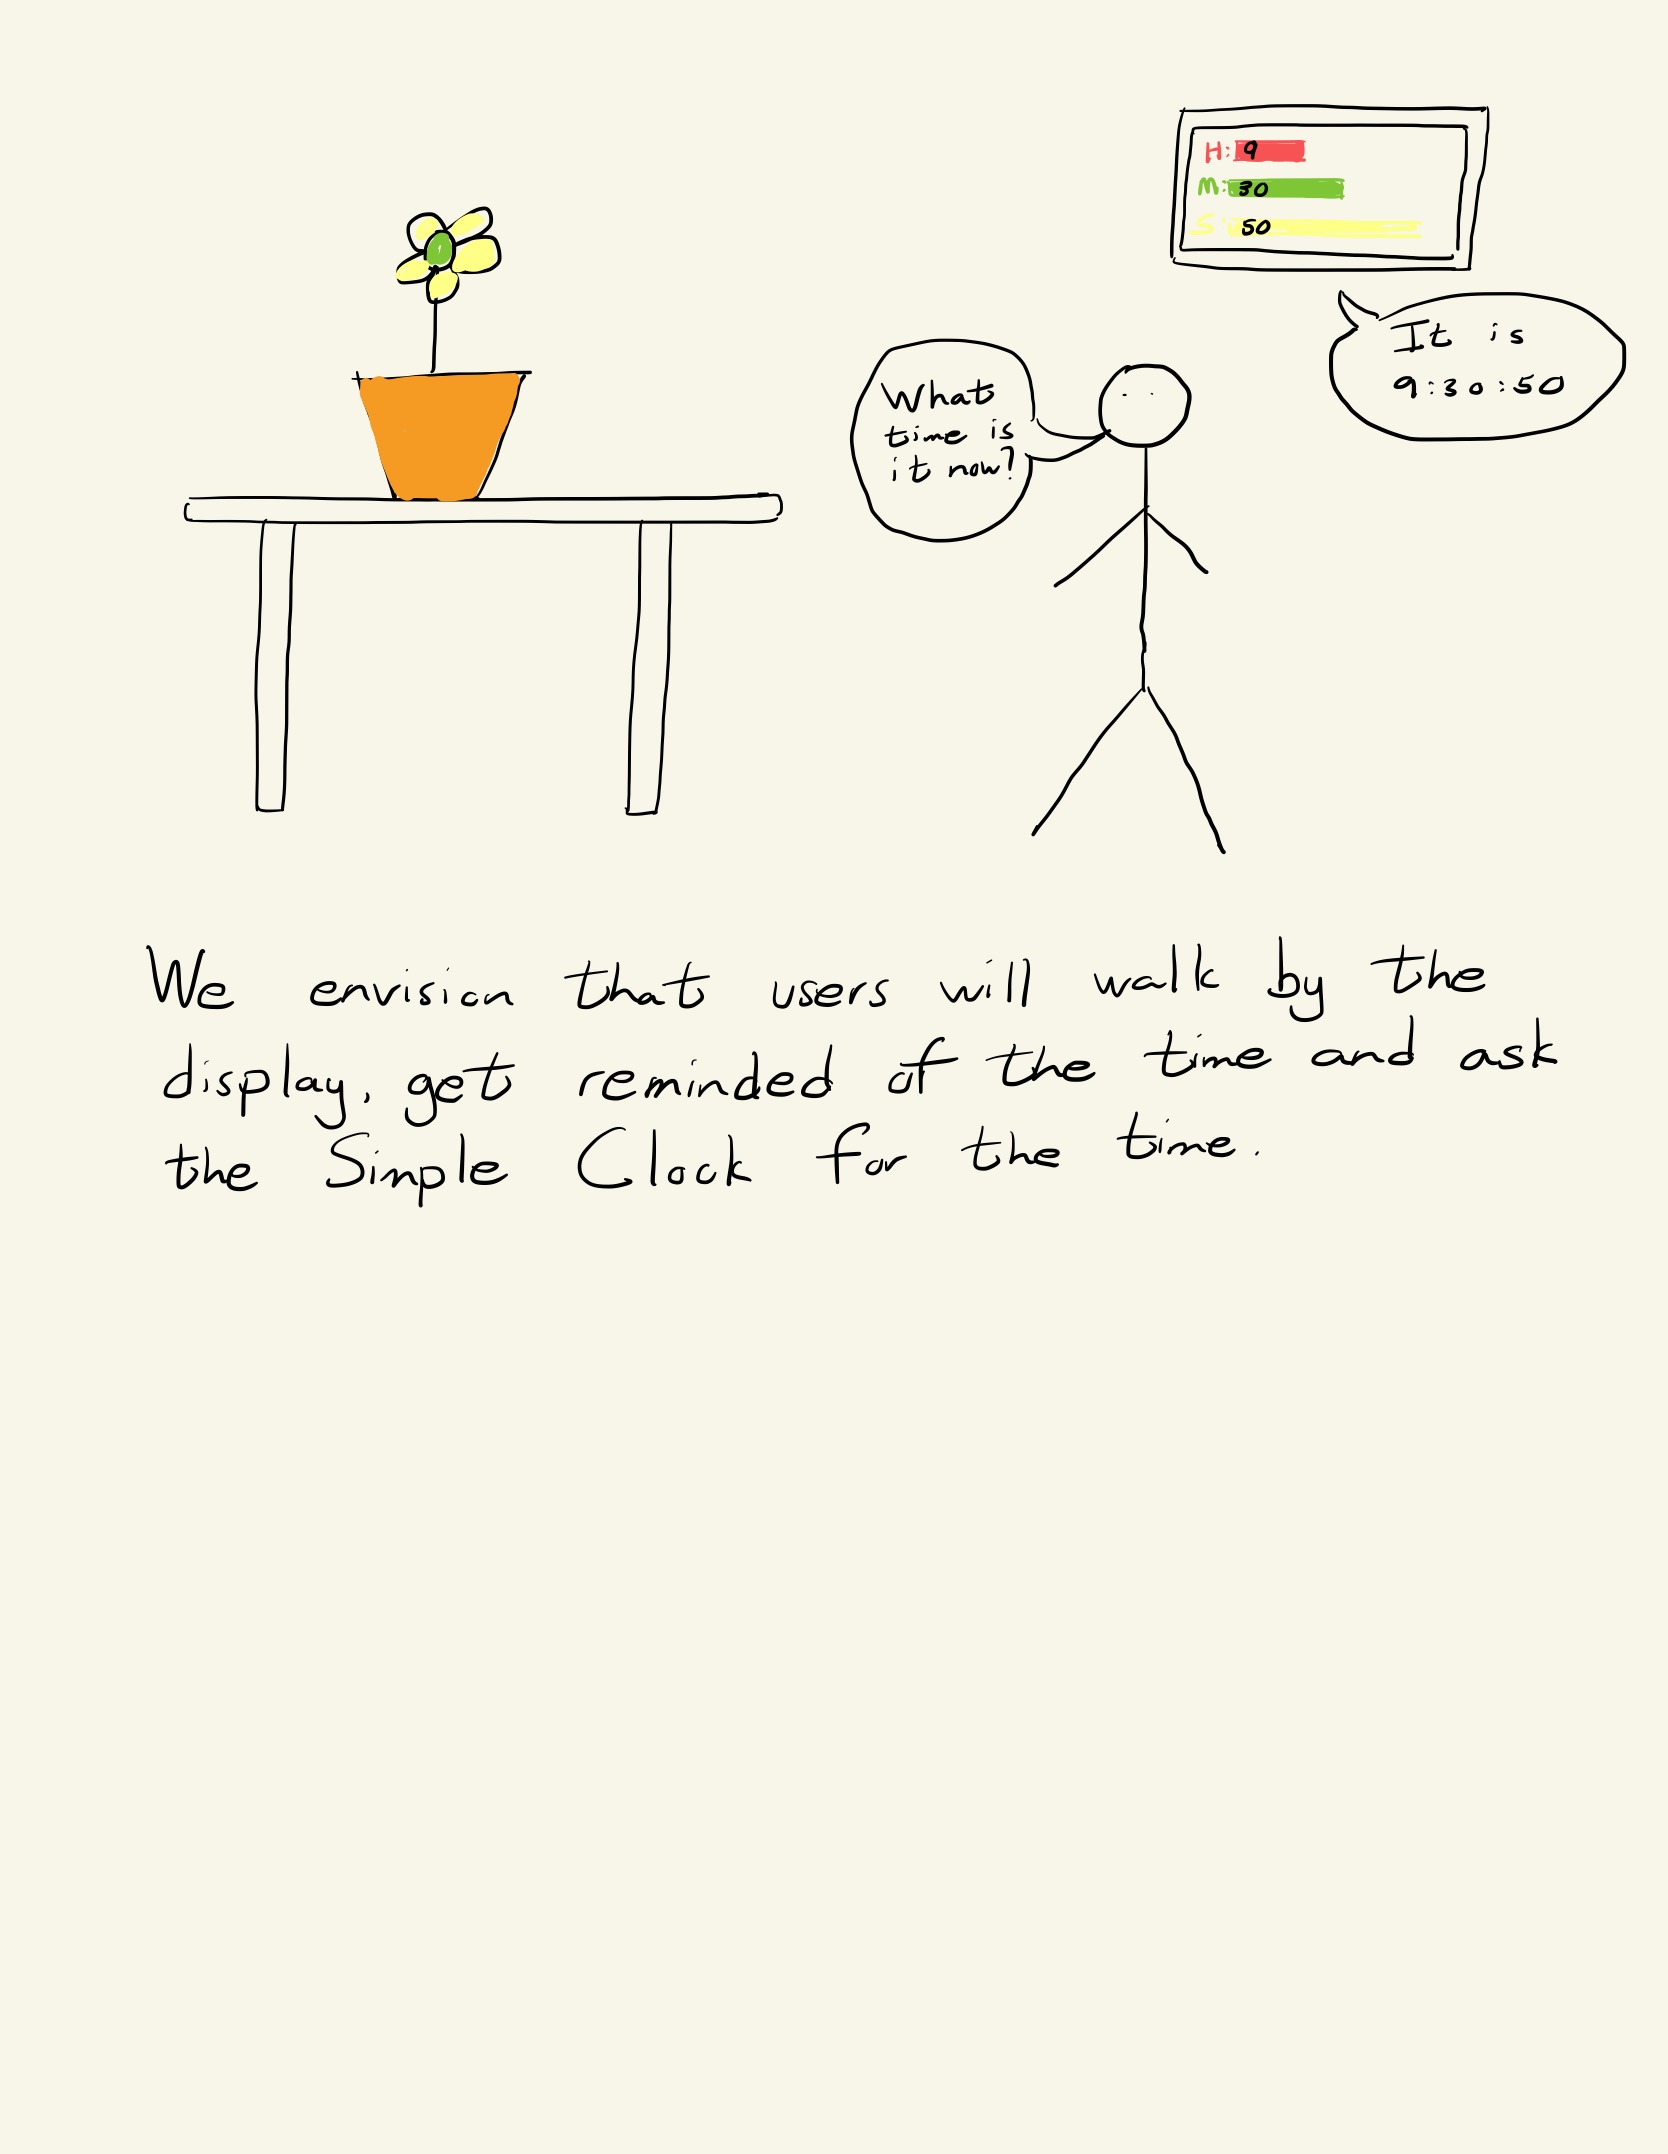 H: 9
M: 30
S: 50
It is
9:30:50
What
time is
it now?
We envision that users will walk by the
display, get reminded of the time and ask
the Simple Clock for the time.